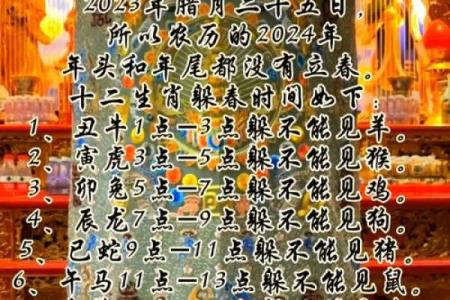 2023年腊月二十五日，
所以农历的2024年
年头和年尾都没有立春。
十二生肖躲春时间如下：
1、丑牛1点—3点躲不能见羊。
2、寅虎3点—5点躲不能见猴。
3、卯兔5点—7点躲不能见鸡。
4、辰龙7点—9点躲不能见狗。
5、巳蛇9点—11点躲不能见猪。
6、午马11点—13点躲不能见鼠。